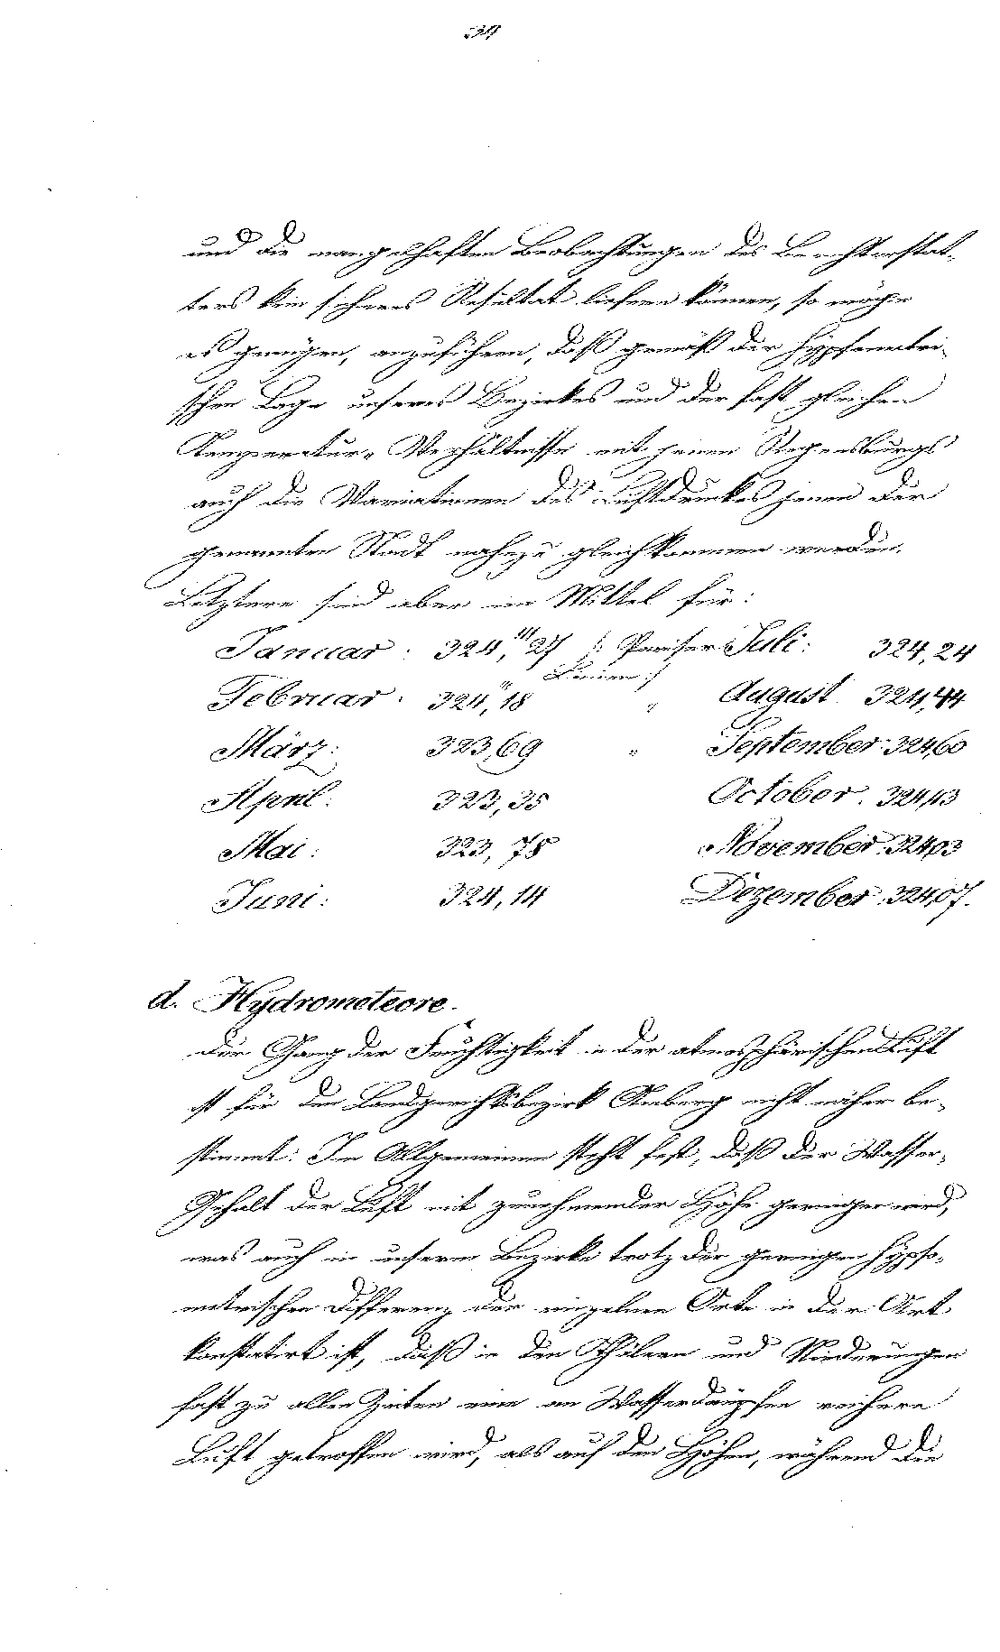 34
und die mangelhaften Beobachtungen des Berichterstat-
ters kein sicheres Resultat liefern können, so möge
es genügen, anzuführen, daß gemäß der hypsometri-
schen Lage unseres Bezirkes und der fast gleichen
Temperatur-Verhältnisse mit jenen Regensburgs
auch die Variationen des Luftdruckes jenen der
genannten Stadt nahezu gleichkommen werden.
Letztere sind aber im Mittel für:
Januar: 324,''' 27 /: Pariser Linien :/ Juli: 324,24
Februar: 324''', 18 " August 324,44
März: 323,69 " September: 324,60
April: 323,35 October. 324,13
Mai: 323,78 November: 324,03
Juni: 324,14 Dezember: 324,07.
d. Hydrometeore.
Der Gang der Feuchtigkeit in der atmosphärischen Luft
ist für den Landgerichtsbezirk Amberg nicht näher be-
stimmt: Im Allgemeinen steht fest, daß der Wasser-
Gehalt der Luft mit zunehmender Höhe geringer wird,
was auch in unserm Bezirke trotz der geringen hypso-
metrischen Differenz der einzelnen Orte in der Art
konstatirt ist, daß in den Thälern und Niederungen
fast zu allen Zeiten eine an Wasserdämpfen reichere
Luft getroffen wird, als auf den Höhen, während die